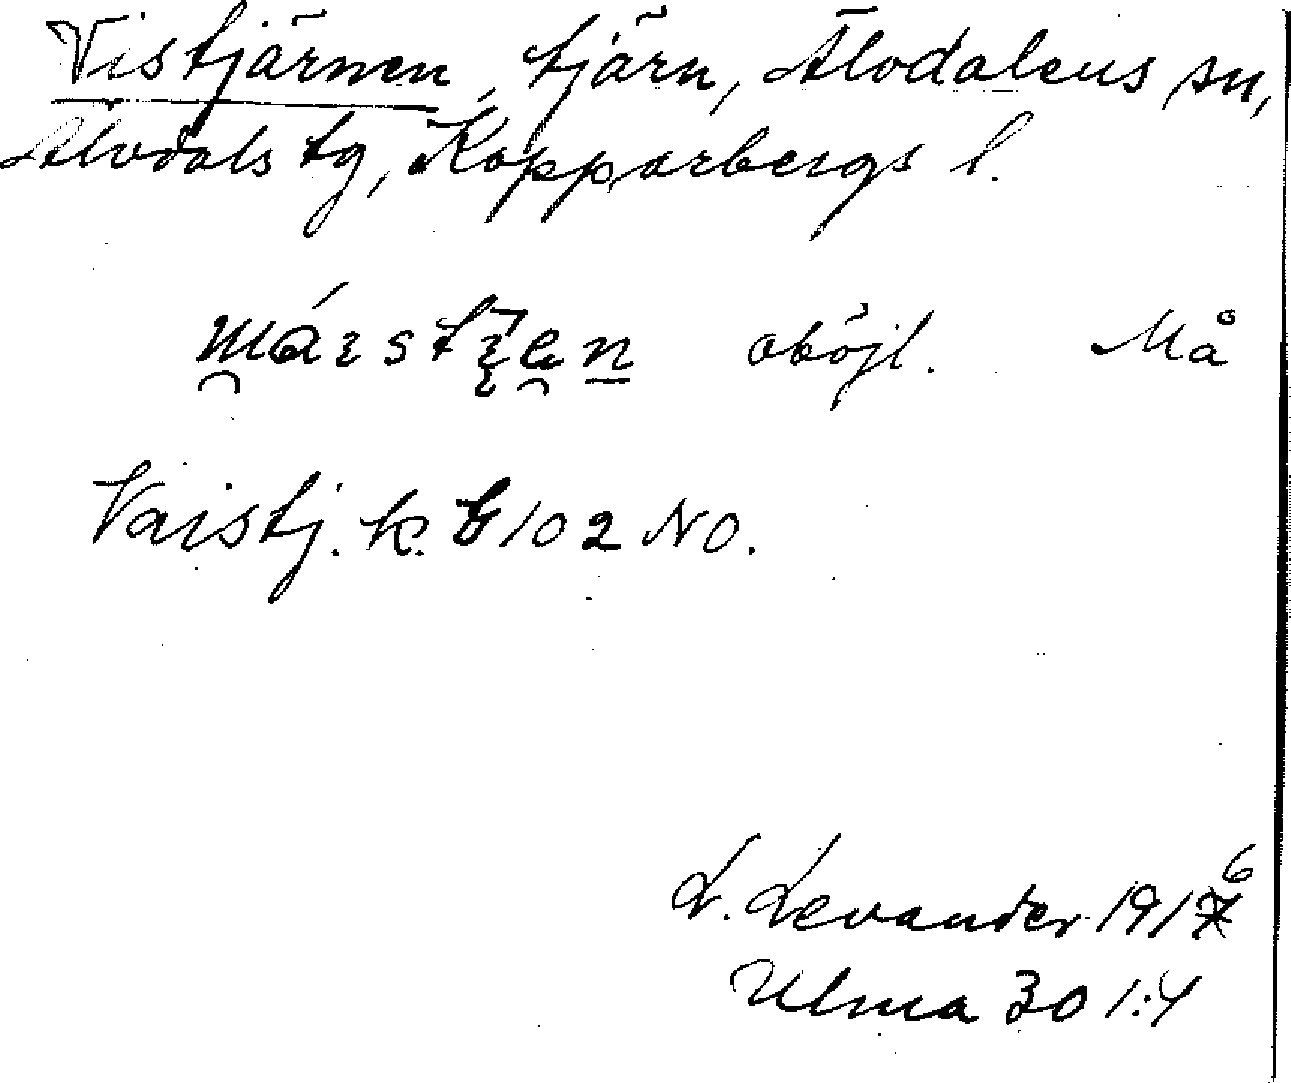 Vistjärnen, tjärn, Älvdalens sn,
Älvdals tg, Kopparbergs l.
oböjl. Må
Vaistj. k. G 102 NO.
L. Levander 1916
Ulma 30 1:4